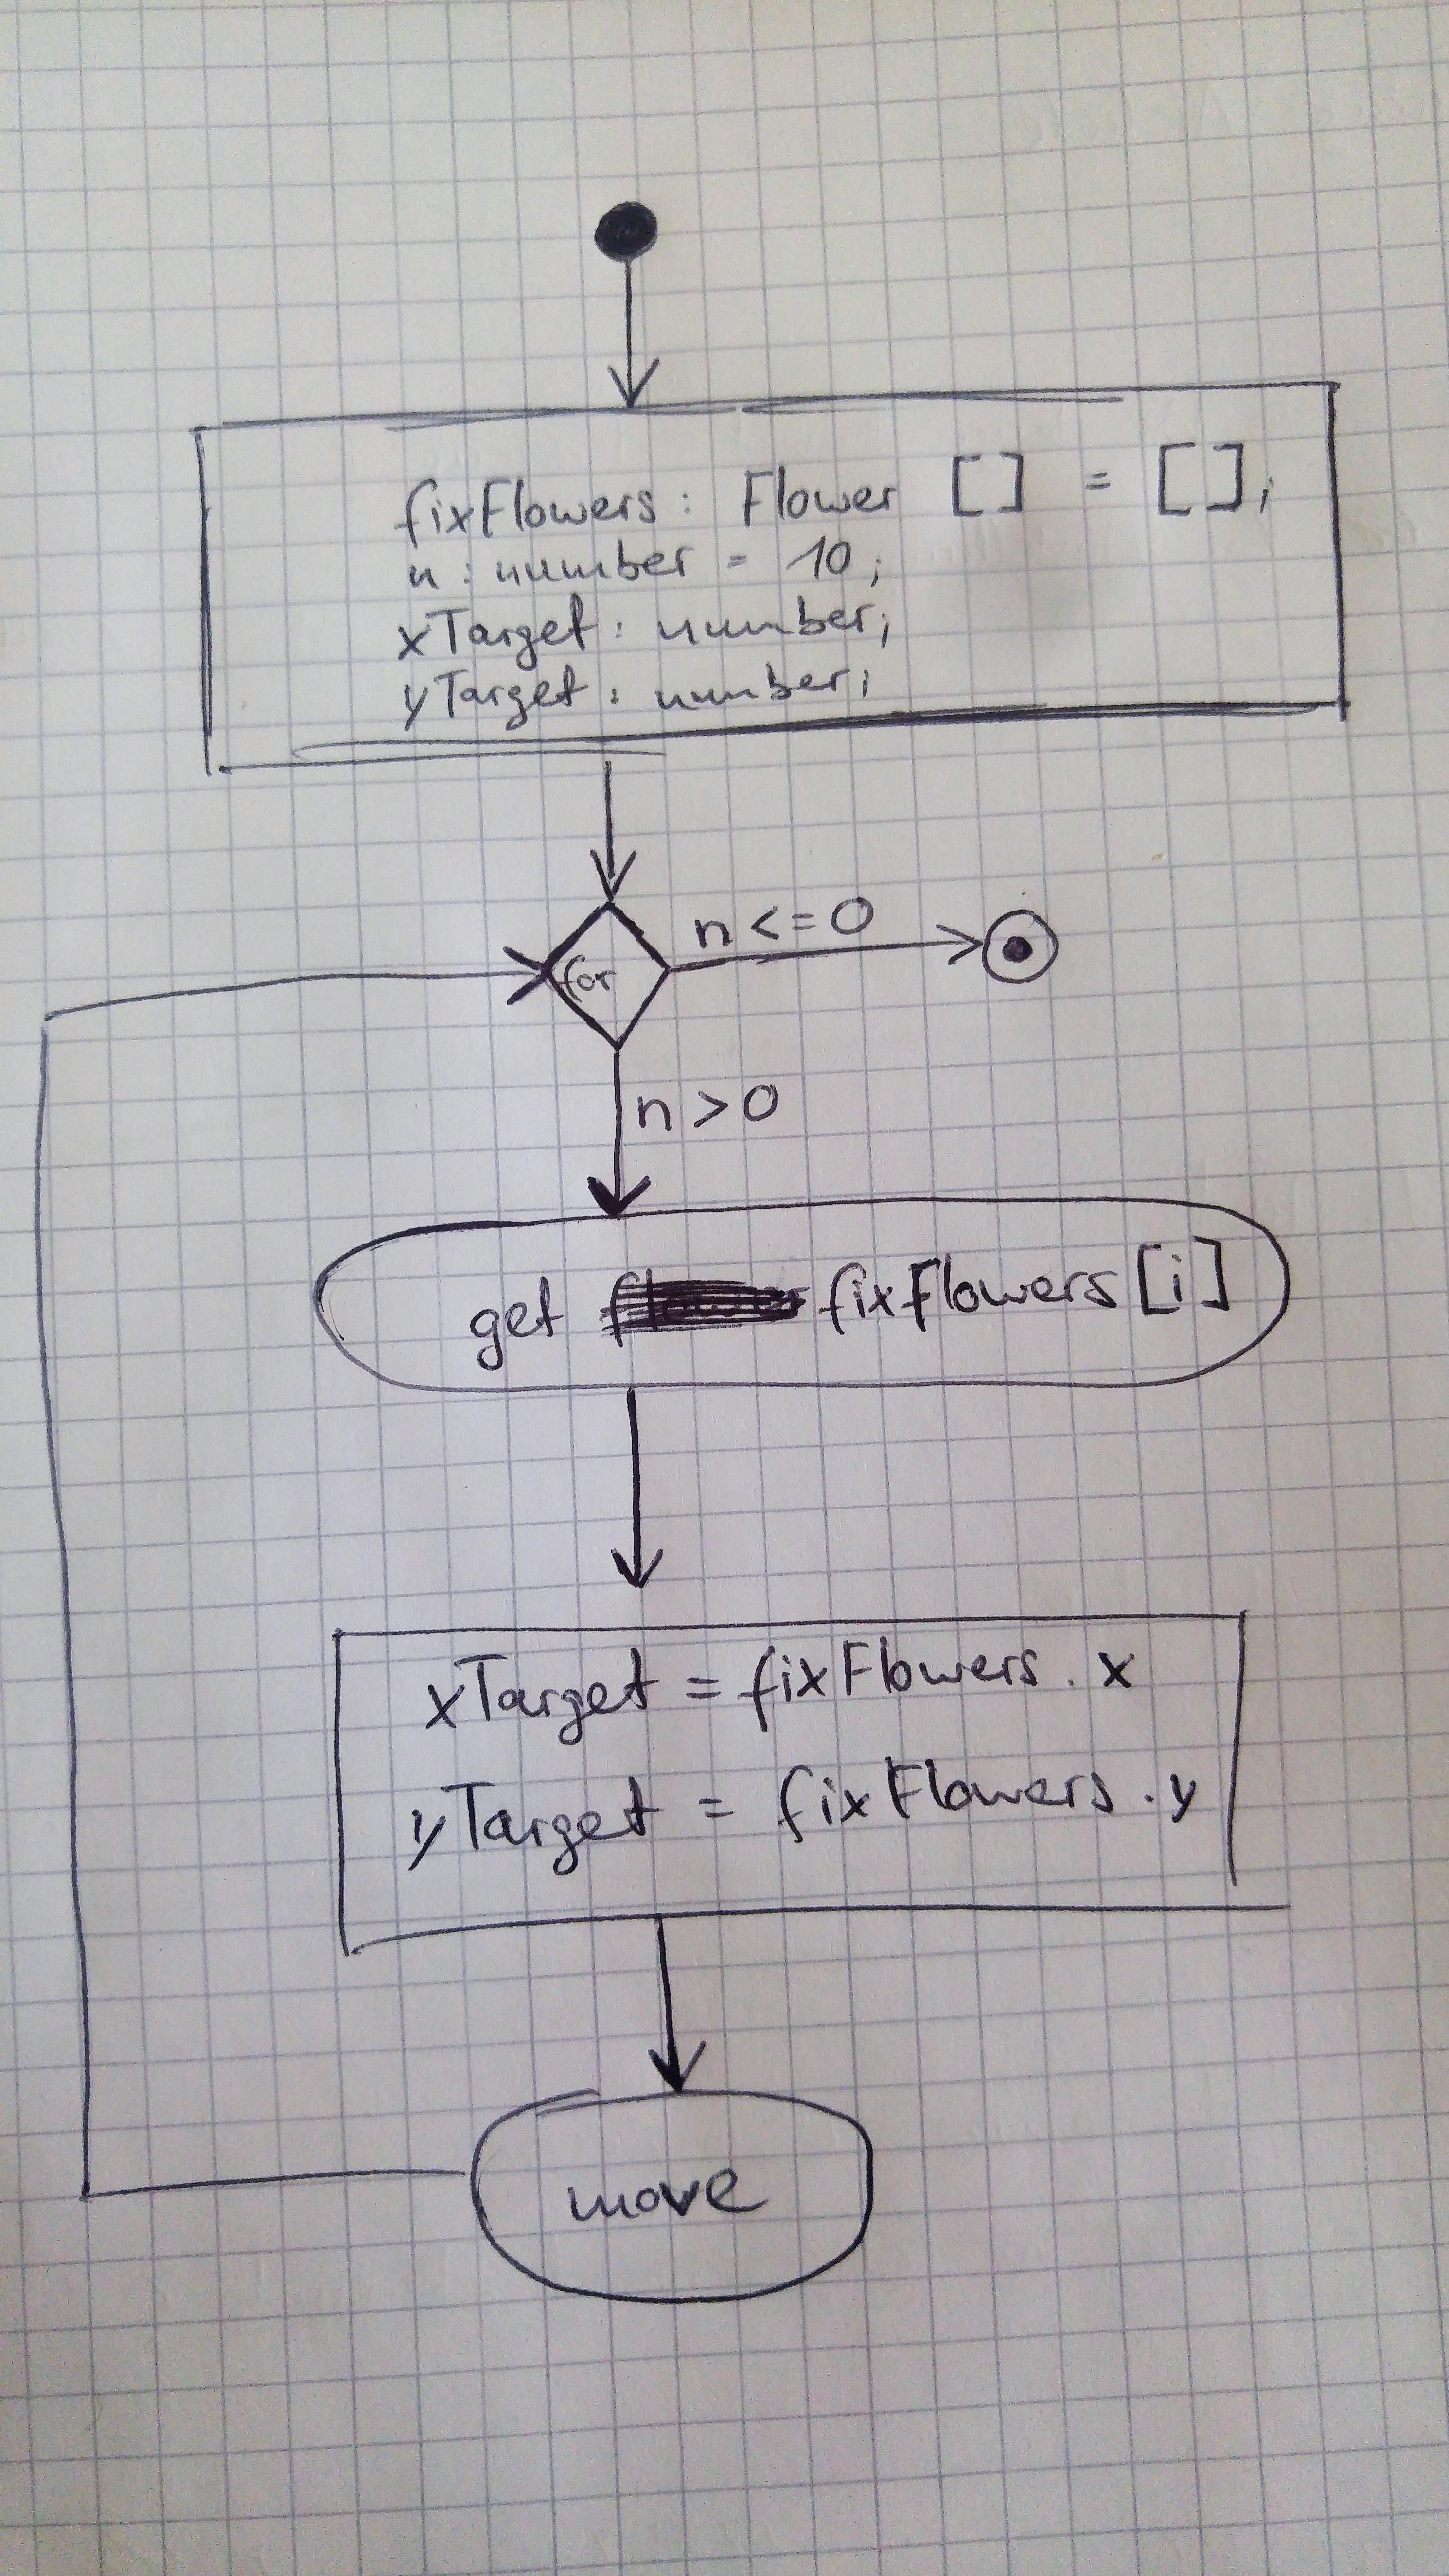 fixFlowers: Flower [] = [];
n: number = 10;
xTarget: number;
yTarget: number;
for
n <= 0
n > 0
get fixFlowers[i]
xTarget = fixFlowers.x
yTarget = fixFlowers.y
move